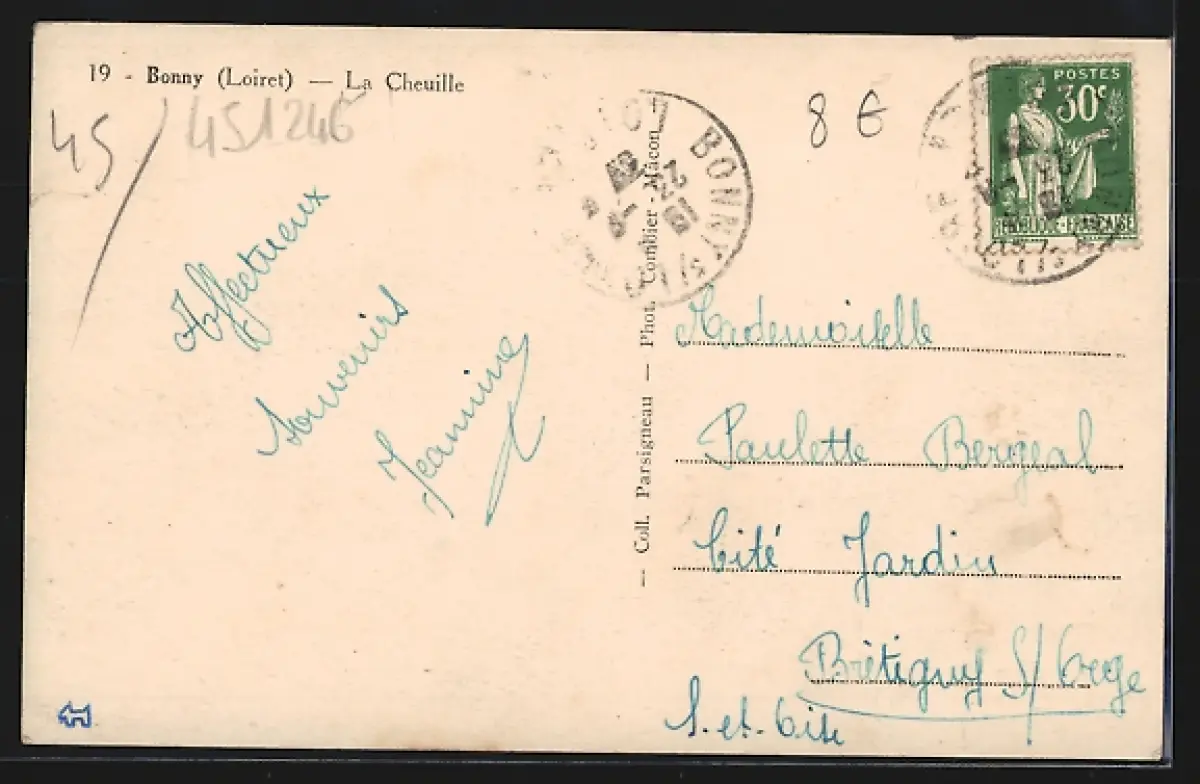 19 - Bonny (Loiret) — La Cheuille
45/
451246
8 €
POSTES
30c
REPUBLIQUE-FRANÇAISE
BONNY S/ L
LOI
Affectueux
Souvenirs
Jeannine
— Coll. Parsigneau — Phot. Combier - Mâcon —
Mademoiselle
Paulette Bergeal
Cité Jardin
Brétigny S/ Orge
S.-et-Oise